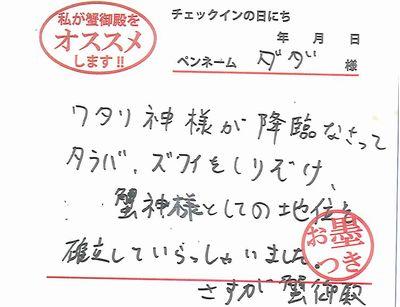 私が蟹御殿を
オススメ
します!!
チェックインの日にち
年 月 日
ペンネーム ダダ 様
ワタリ神様が降臨なさって
タラバ、ズワイをしりぞけ、
蟹神様としての地位を
確立していらっしゃいました。
さすが蟹御殿
お墨つき